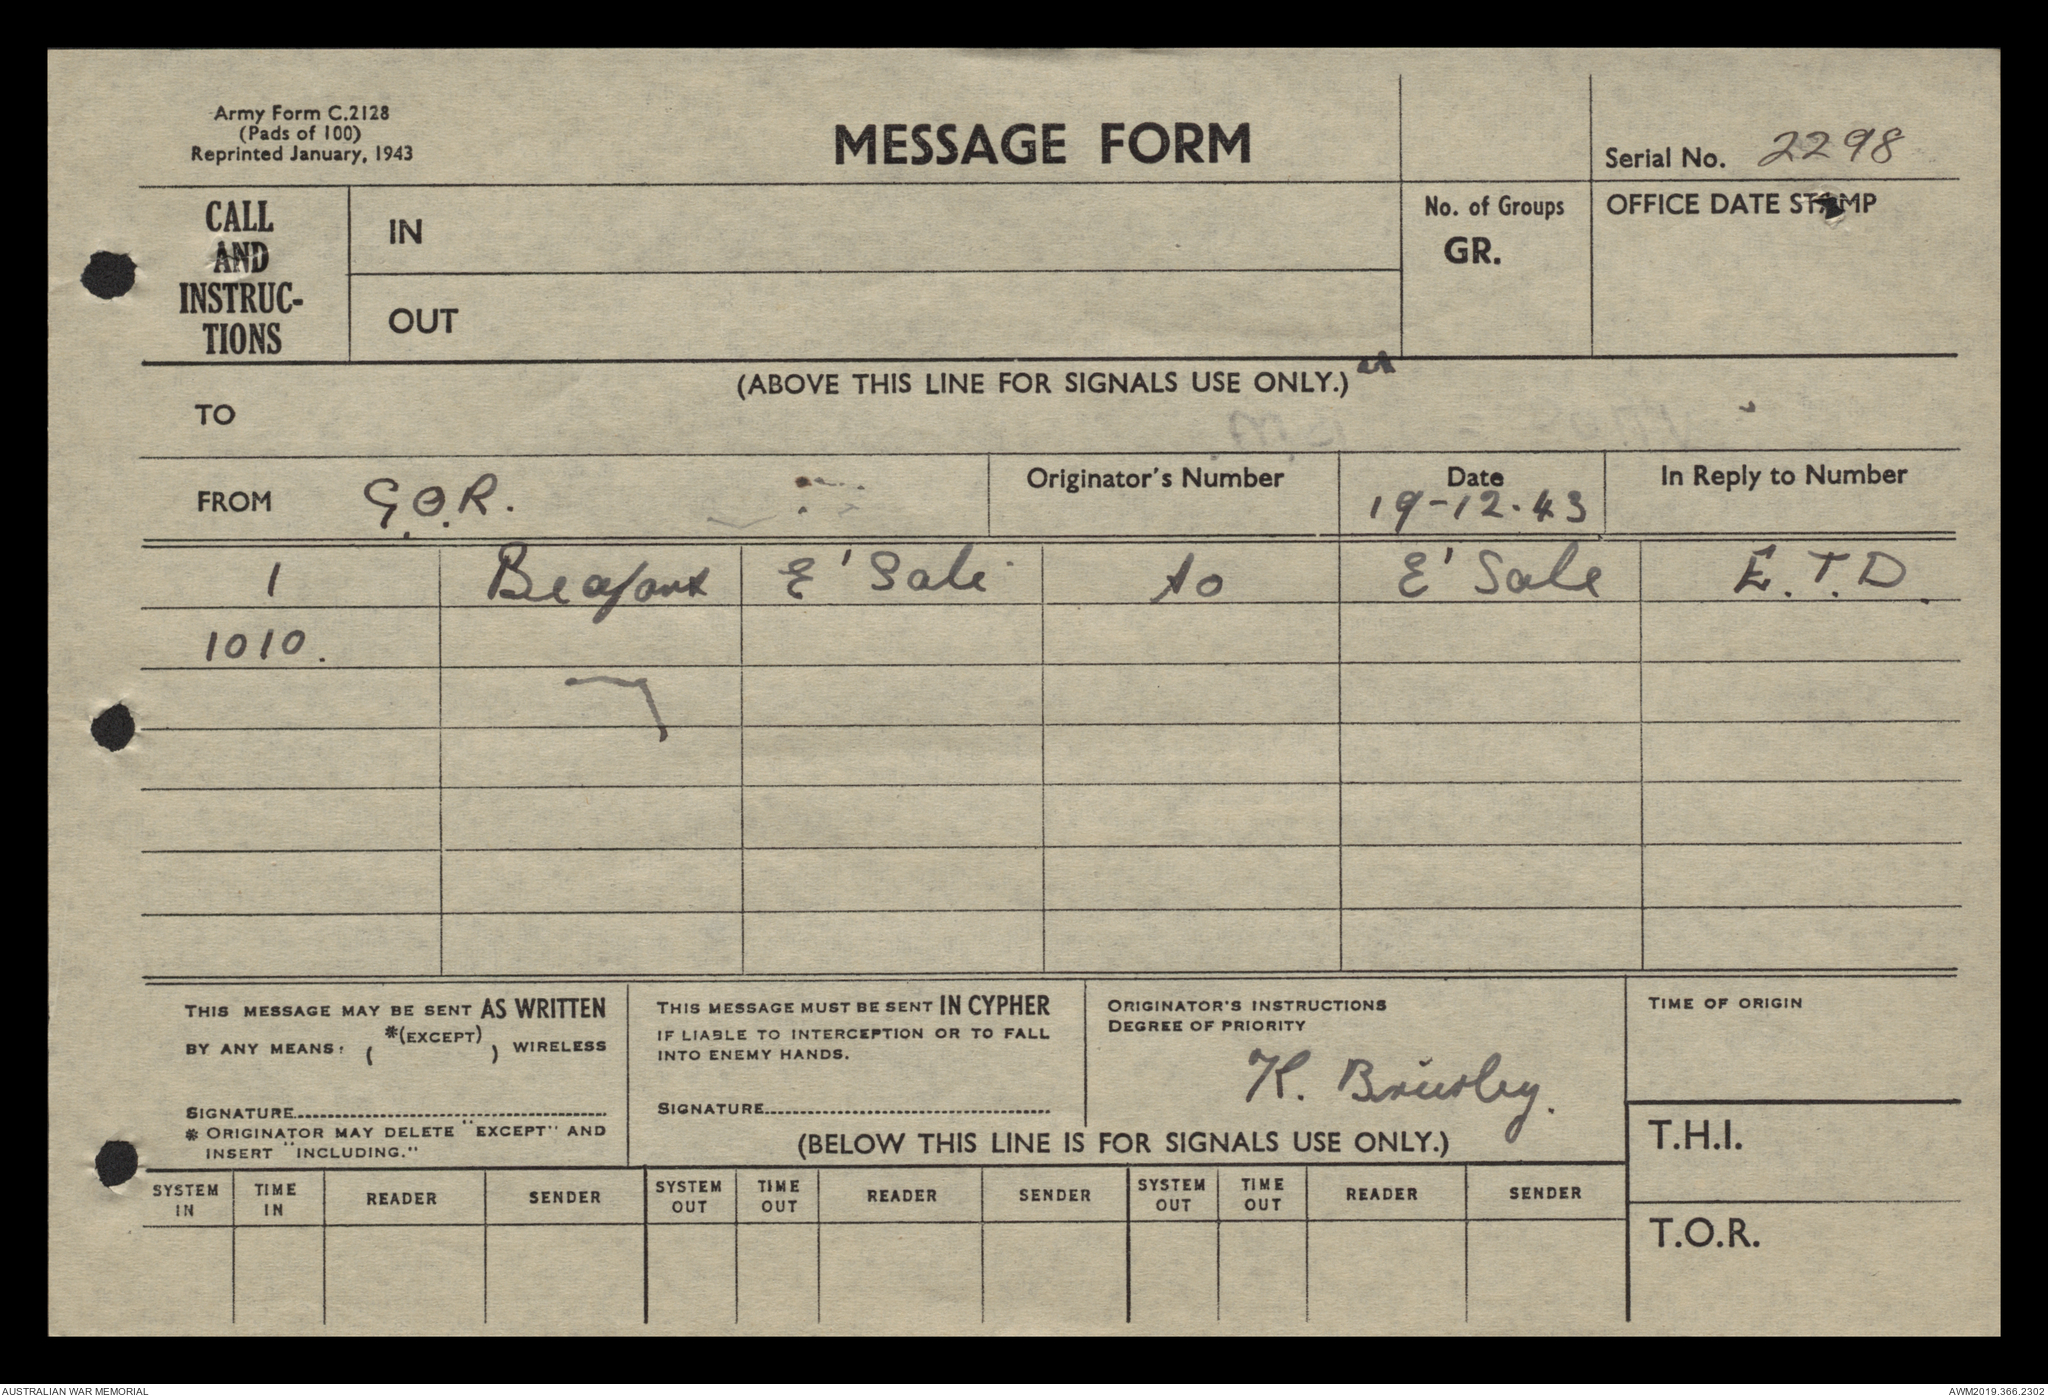 Army Form C.2128
(Pads of 100)
Reprinted January, 1943
MESSAGE FORM
Serial No. 2298
CALL
AND
INSTRUC-
TIONS
IN
OUT
No. of Groups
GR.
OFFICE DATE STAMP
(ABOVE THIS LINE FOR SIGNALS USE ONLY.)
TO
FROM G.O.R.
Originator's Number
Date
19-12.43
In Reply to Number
1 E' Sale to E' Sale E.T.D.
1010.
THIS MESSAGE MAY BE SENT AS WRITTEN
BY ANY MEANS: ( *(EXCEPT) ) WIRELESS
SIGNATURE
* ORIGINATOR MAY DELETE "EXCEPT" AND
INSERT "INCLUDING."
THIS MESSAGE MUST BE SENT IN CYPHER
IF LIABLE TO INTERCEPTION OR TO FALL
INTO ENEMY HANDS.
SIGNATURE
ORIGINATOR'S INSTRUCTIONS
DEGREE OF PRIORITY
K.
TIME OF ORIGIN
(BELOW THIS LINE IS FOR SIGNALS USE ONLY.)
T.H.I.
SYSTEM IN TIME IN READER SENDER SYSTEM OUT TIME OUT READER SENDER SYSTEM OUT TIME OUT READER SENDER
T.O.R.
AUSTRALIAN WAR MEMORIAL
AWM2019.366.2302